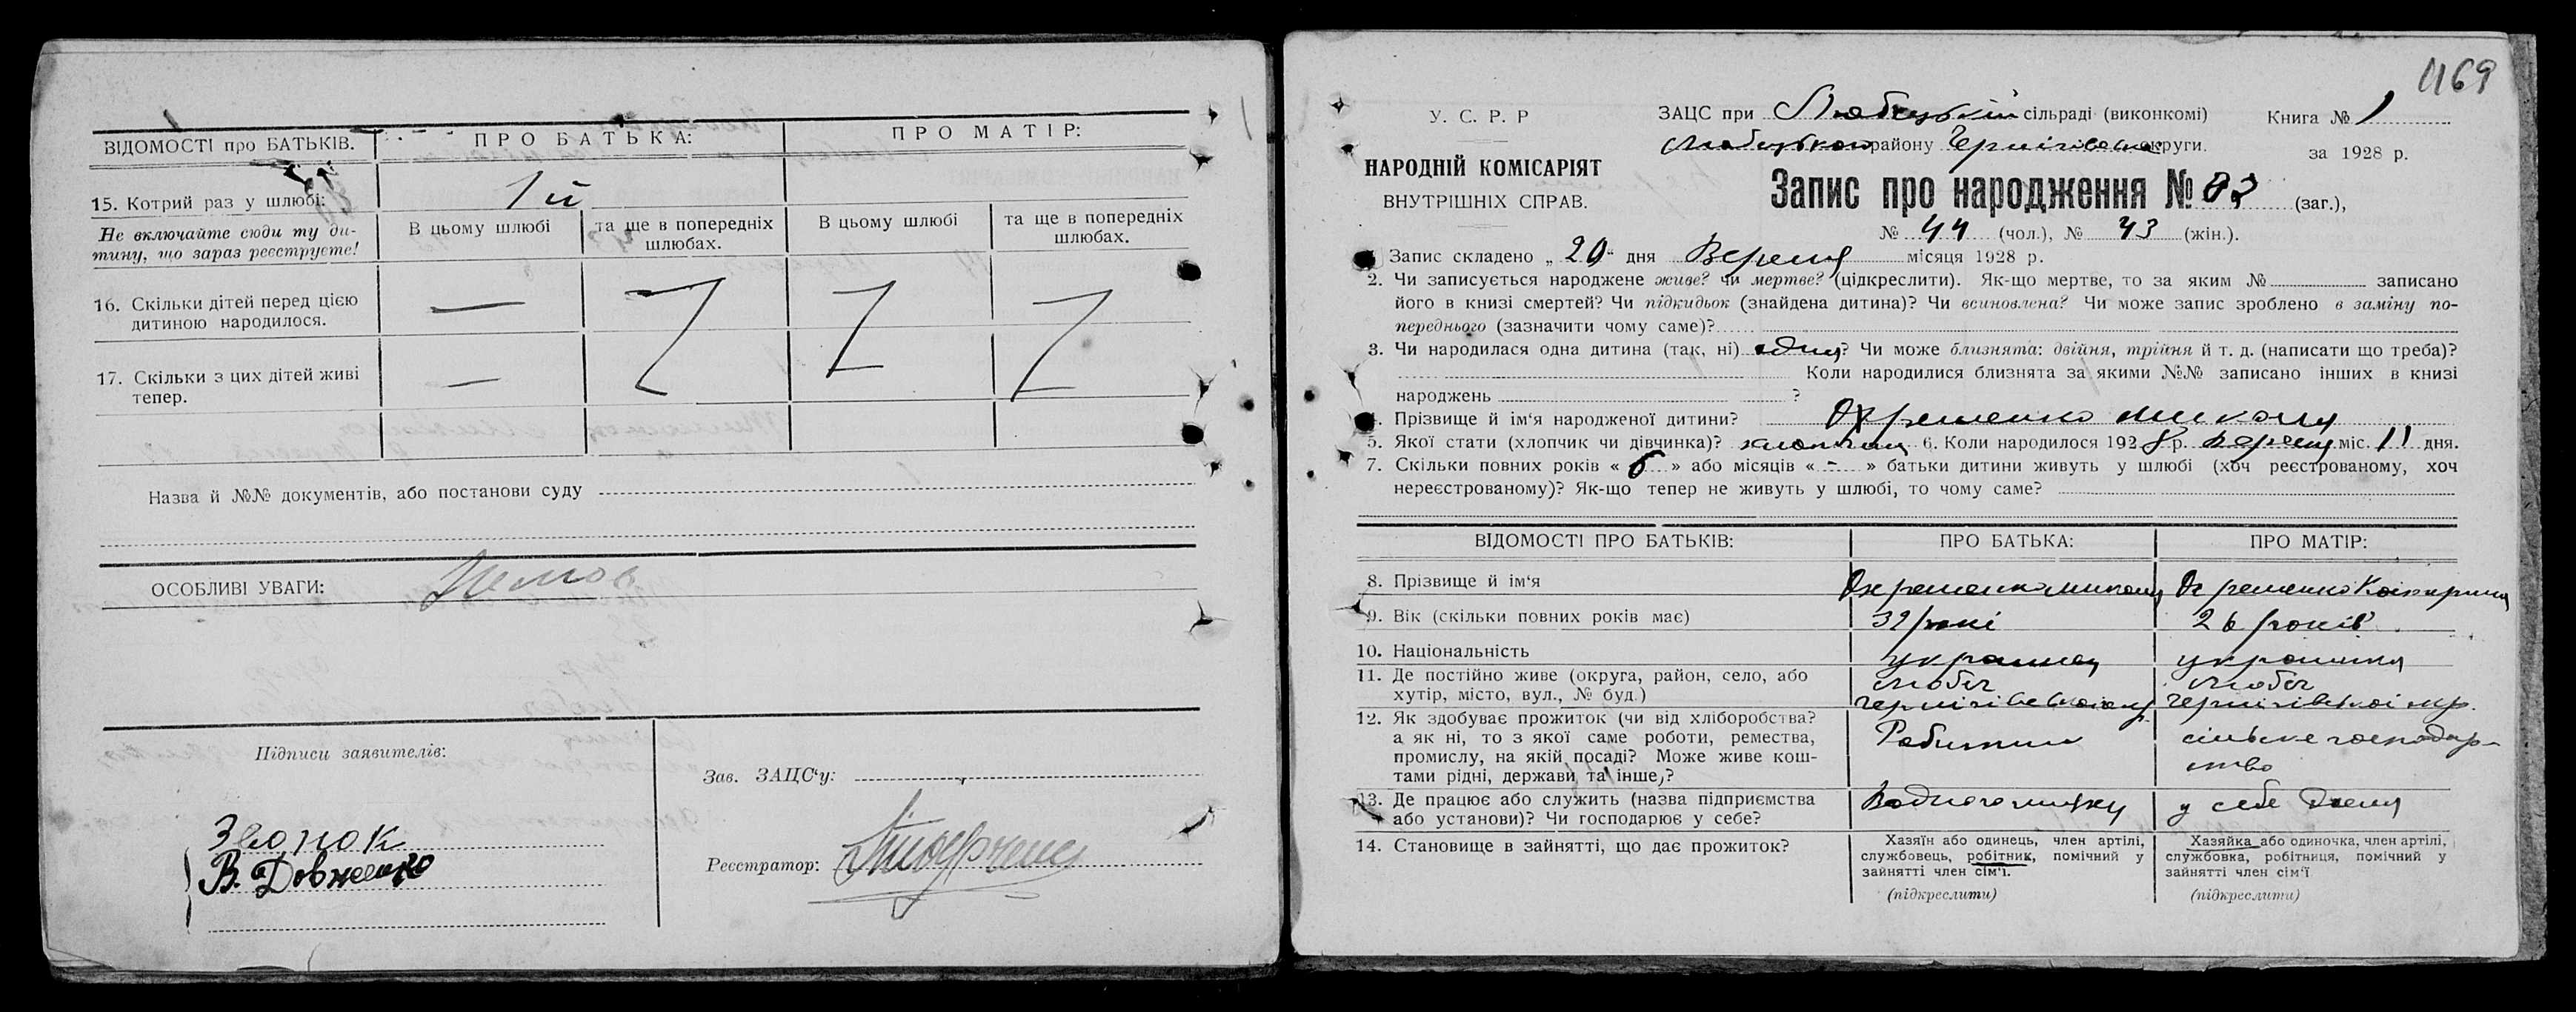 ВІДОМОСТІ про БАТЬКІВ.
ПРО БАТЬКА:
ПРО МАТІР:
15. Котрий раз у шлюбі:
1й
Не включайте сюди ту ди-
тину, що зараз реєструєте!
В цьому шлюбі
та ще в попередніх
шлюбах.
В цьому шлюбі
та ще в попередніх
шлюбах.
16. Скільки дітей перед цією
дитиною народилося.
—
17. Скільки з цих дітей живі
тепер.
—
Назва й №№ документів, або постанови суду
ОСОБЛИВІ УВАГИ:
Підписи заявителів:
Звонок
В. Довженко
Зав. ЗАЦС‘у:
Реєстратор:
1169
У. С. Р. Р
НАРОДНІЙ КОМІСАРІЯТ
ВНУТРІШНІХ СПРАВ.
ЗАЦС при Любецькій сільраді (виконкомі)
Любецького району Чернігівської округи.
Книга № 1
за 1928 р.
Запис про народження № 83 (заг.),
№ 44 (чол.), № 43 (жін.).
Запис складено „ 20 “ дня Вересня місяця 1928 р.
2. Чи записується народжене живе? чи мертве? (підкреслити). Як-що мертве, то за яким № записано
його в книзі смертей? Чи підкидьок (знайдена дитина)? Чи всиновлена? Чи може запис зроблено в заміну по-
переднього (зазначити чому саме)?
3. Чи народилася одна дитина (так, ні) одна? Чи може близнята: двійня, трійня й т. д. (написати що треба)?
Коли народилися близнята за якими №№ записано інших в книзі
народжень ?
Прізвище й ім‘я народженої дитини? Охременко Микола
5. Якої стати (хлопчик чи дівчинка)? хлопчик 6. Коли народилося 1928 р. вересня міс. 11 дня.
7. Скільки повних років « 6 » або місяців « - » батьки дитини живуть у шлюбі (хоч реєстрованому, хоч
нереєстрованому)? Як-що тепер не живуть у шлюбі, то чому саме?
ВІДОМОСТІ ПРО БАТЬКІВ:
ПРО БАТЬКА:
ПРО МАТІР:
8. Прізвище й ім‘я
Охременко Микола
Охременко Катерина
9. Вік (скільки повних років має)
32 роки
26 років
10. Національність
українец
українка
11. Де постійно живе (округа, район, село, або
хутір, місто, вул., № буд.)
Любеч
Чернігівської
Любеч
Чернігівської окр.
12. Як здобуває прожиток (чи від хліборобства?
а як ні, то з якої саме роботи, ремества,
промислу, на якій посаді? Може живе кош-
тами рідні, держави та інше,?
Робитник
сільське господар-
ство
13. Де працює або служить (назва підприємства
або установи)? Чи господарює у себе?
у себе дома
14. Становище в зайнятті, що дає прожиток?
Хазяїн або одинець, член артілі,
службовець, робітник, помічний у
зайнятті член сім‘ї.
(підкреслити)
Хазяйка або одиночка, член артілі,
службовка, робітниця, помічний у
зайнятті член сім‘ї
(підкреслити)